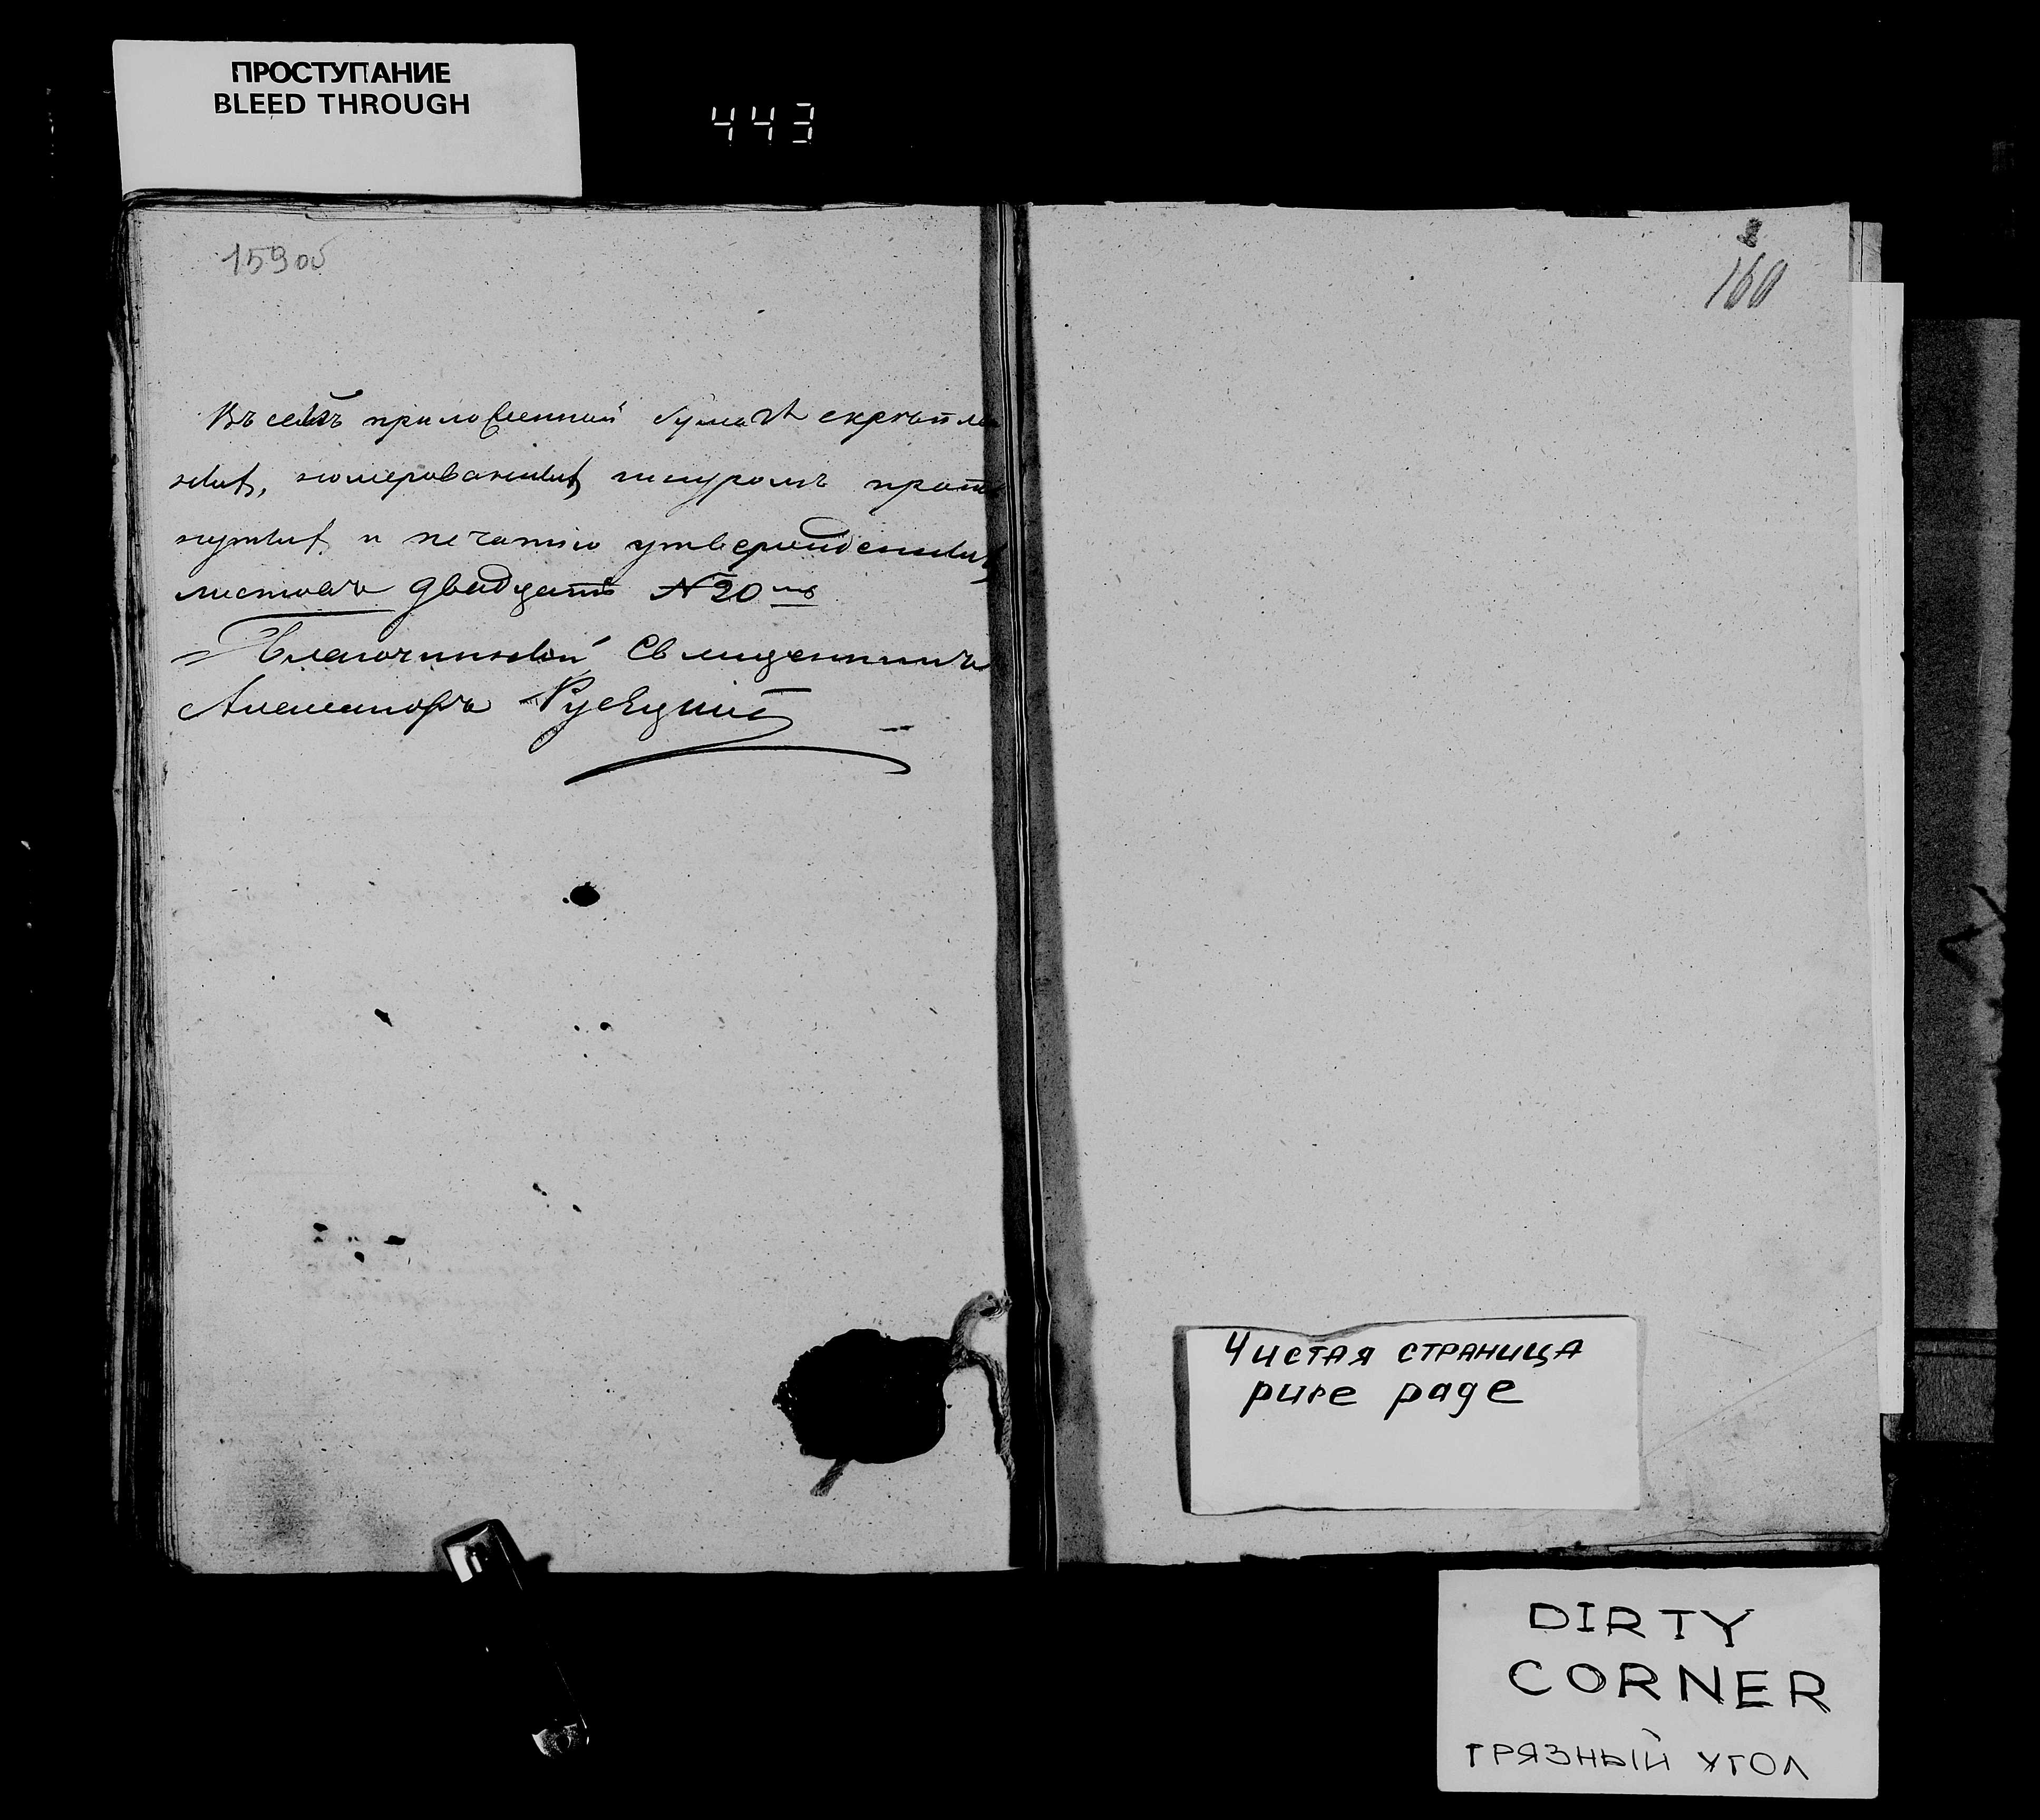 ПРОСТУПАНИЕ
BLEED THROUGH
443
159об
160
Въ сей приложенной бумагѣ скрѣплен
ныхъ, номерованныхъ шнуромъ протя
нутыхъ и печатью утвержденныхъ
листовъ двадцать № 20ть
Благочинный Священникъ
Александръ
Чистая страница
pure page
DIRTY
CORNER
ГРЯЗНЫЙ УГОЛ